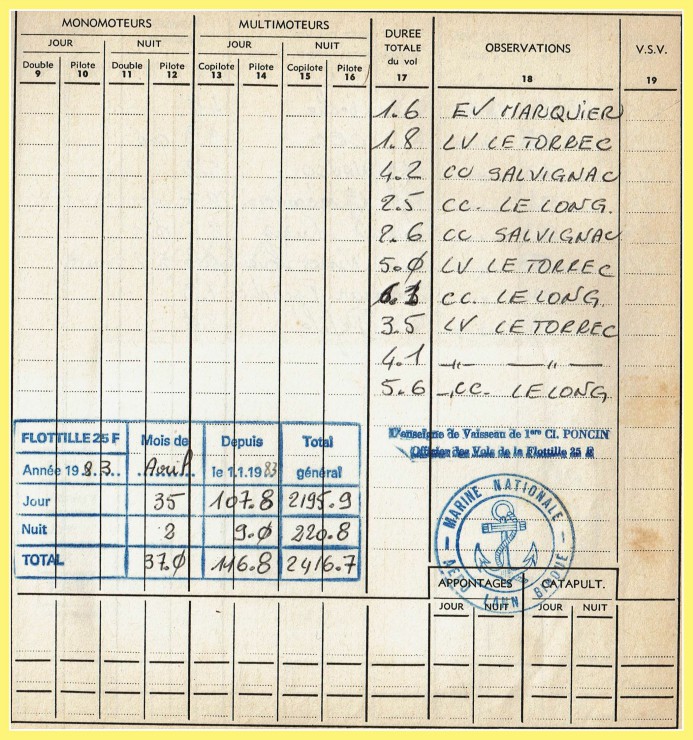 MONOMOTEURS MULTIMOTEURS DUREE TOTALE du vol OBSERVATIONS V.S.V.
JOUR NUIT JOUR NUIT
Double Pilote Double Pilote Copilote Pilote Copilote Pilote
9 10 11 12 13 14 15 16 17 18 19
1.6 EV MARQUIER
1.8 LV LE TORREC
4.2 CC SALVIGNAC
2.5 CC. LE LONG.
2.6 CC SALVIGNAC
5.0 LV LE TORREC
CC. LE LONG.
3.5 LV LE TORREC
4.1 -"- -"-
5.6 CC. LE LONG
FLOTTILLE 25 F Mois de Depuis Total
Année 1983. Avril le 1.1.1983 général
Jour 35 107.8 2195.9
Nuit 2 9.0 220.8
TOTAL 37.0 116.8 2416.7
L'enseigne de Vaisseau de 1ère Cl. PONCIN
Officier des Vols de la Flottille 25 F
MARINE NATIONALE
AERO
APPONTAGES CATAPULT.
JOUR NUIT JOUR NUIT